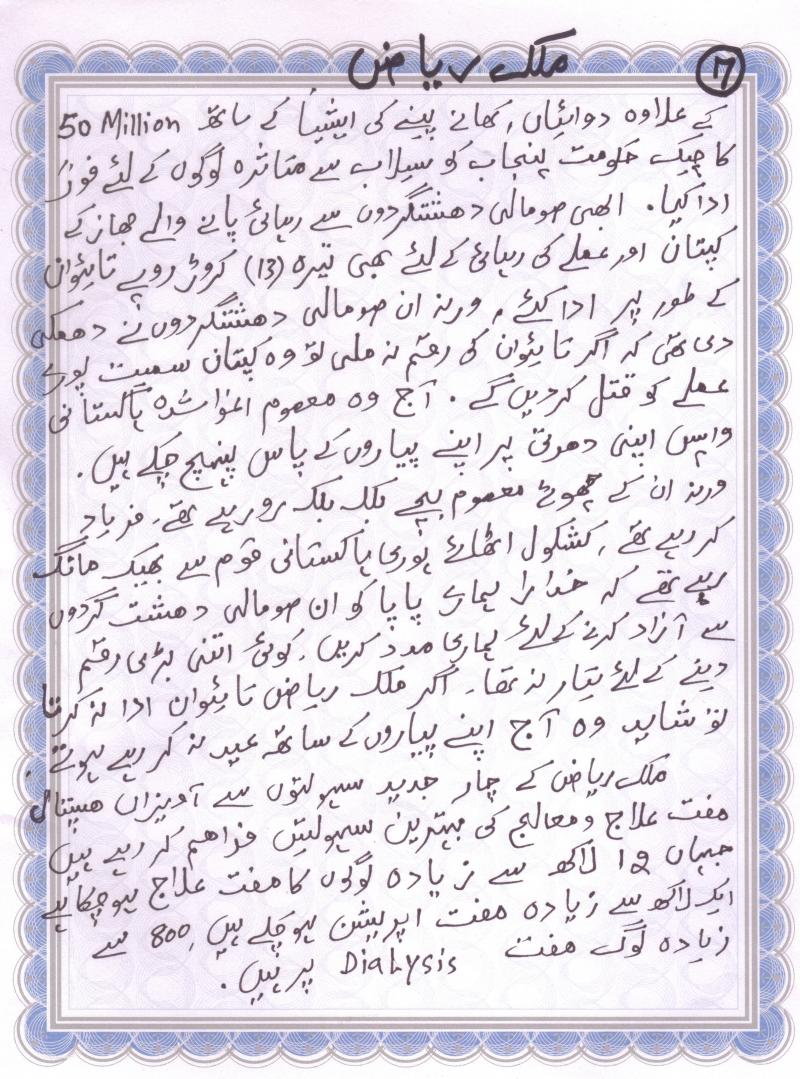 ملک ریاض ۱۷
کے علاوہ دوائیاں، کھانے پینے کی ایشیا کے ساتھ 50 Million
کا چیک حکومت پنجاب کو سیلاب سے متاثرہ لوگوں کے لئے فوراً
ادا کیا۔ ابھی صومالی دھشتگردوں سے رہائی پانے والے جہاز کے
کپتان اور عملے کی رہائی کے لئے بھی تیرہ (13) کروڑ روپے تائیوان
کے طور پر ادا کئے، ورنہ ان صومالی دھشتگردوں نے دھمکی
دی تھی کہ اگر تائیوان کی رقم نہ ملی تو وہ کپتان سمیت پورے
عملے کو قتل کر دیں گے۔ آج وہ معصوم اغواشدہ پاکستانی
واپس اپنی دھرتی پر اپنے پیاروں کے پاس پہنچ چکے ہیں۔
ورنہ ان کے چھوٹے معصوم بچے بلک بلک رو رہے تھے، فریاد
کر رہے تھے، کشکول اٹھائے پوری پاکستانی قوم سے بھیک مانگ
رہے تھے کہ خدارا ہماری پاپا کو ان صومالی دھشت گردوں
سے آزاد کرنے کے لئے ہماری مدد کریں، کوئی اتنی بڑی رقم
دینے کے لئے تیار نہ تھا۔ اگر ملک ریاض تائیوان ادا نہ کرتا
تو شاید وہ آج اپنے پیاروں کے ساتھ عید نہ کر رہے ہوتے۔
ملک ریاض کے چار جدید سہولتوں سے آویزاں ھسپتال
مفت علاج ومعالج کی بہترین سہولتیں فراھم کر رہے ہیں
جہاں 12 لاکھ سے زیادہ لوگوں کا مفت علاج ہو چکا ہے
ایک لاکھ سے زیادہ مفت اپریشن ہو چکے ہیں، 800 سے
زیادہ لوگ مفت Dialysis پر ہیں۔